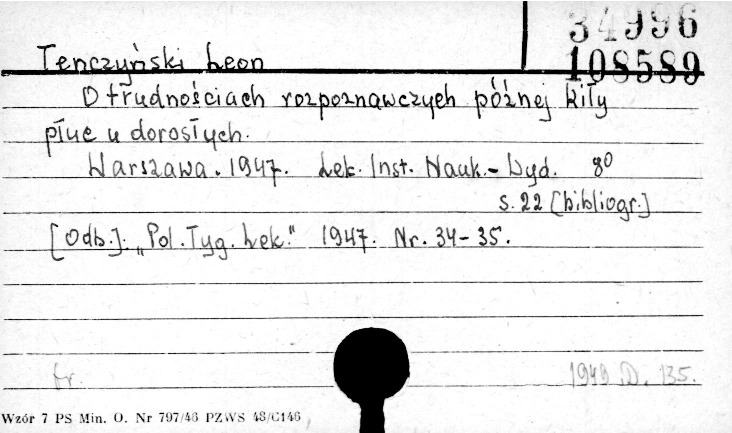 34996
Tenczyński Leon
108589
O trudnościach rozpoznawczych późnej kiły
płuc u dorosłych.
Warszawa. 1947. Lek. Inst. Nauk.-Wyd. 8º
s. 22 [bibliogr.]
[Odb.]. "Pol. Tyg. Lek." 1947. Nr. 34-35.
fr. 1949. D. 135.
Wzór 7 PS Min. O. Nr 797/46 PZWS 48/C146